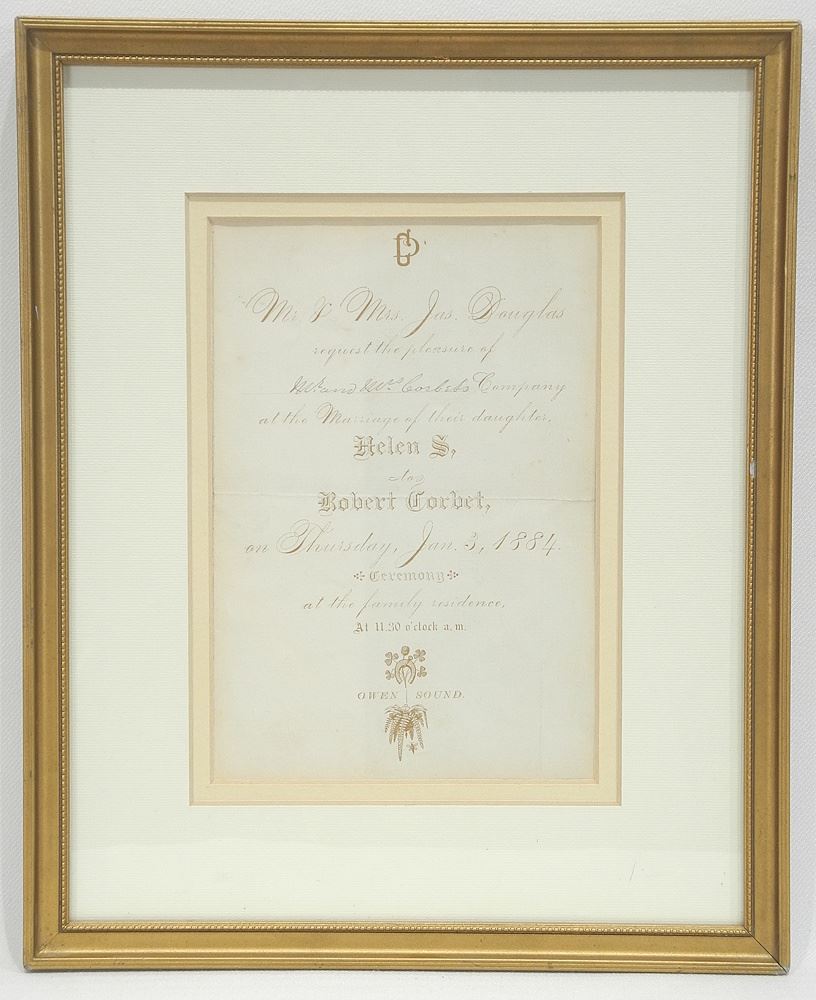 Mr & Mrs. Jas. Douglas
request the pleasure of
Mr and Mrs Corbets Company
at the Marriage of their daughter,
Helen S,
to
Robert Corbet,
on Thursday, Jan. 3, 1884.
Ceremony
at the family residence,
At 11.30 o'clock a.m.
OWEN SOUND.